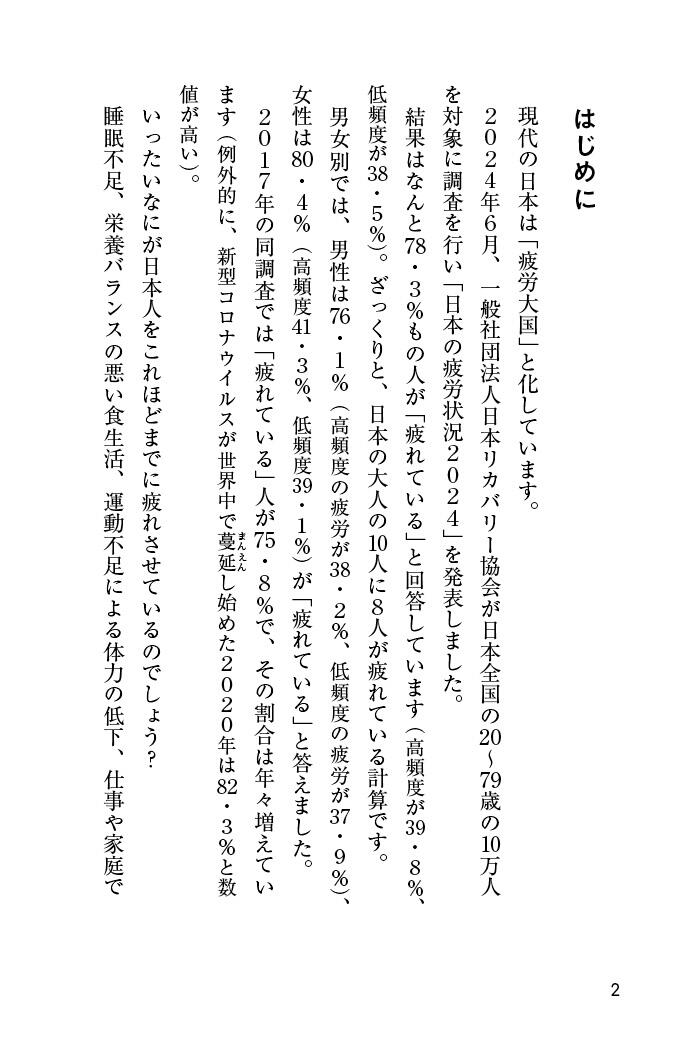 はじめに
現代の日本は「疲労大国」と化しています。
２０２４年６月、一般社団法人日本リカバリー協会が日本全国の20〜79歳の10万人
を対象に調査を行い「日本の疲労状況２０２４」を発表しました。
結果はなんと78・３％もの人が「疲れている」と回答しています（高頻度が39・８％、
低頻度が38・５％）。ざっくりと、日本の大人の10人に８人が疲れている計算です。
男女別では、男性は76・１％（高頻度の疲労が38・２％、低頻度の疲労が37・９％）、
女性は80・４％（高頻度41・３％、低頻度39・１％）が「疲れている」と答えました。
２０１７年の同調査では「疲れている」人が75・８％で、その割合は年々増えてい
ます（例外的に、新型コロナウイルスが世界中で蔓延し始めた２０２０年は82・３％と数
まんえん
値が高い）。
いったいなにが日本人をこれほどまでに疲れさせているのでしょう？
睡眠不足、栄養バランスの悪い食生活、運動不足による体力の低下、仕事や家庭で
2